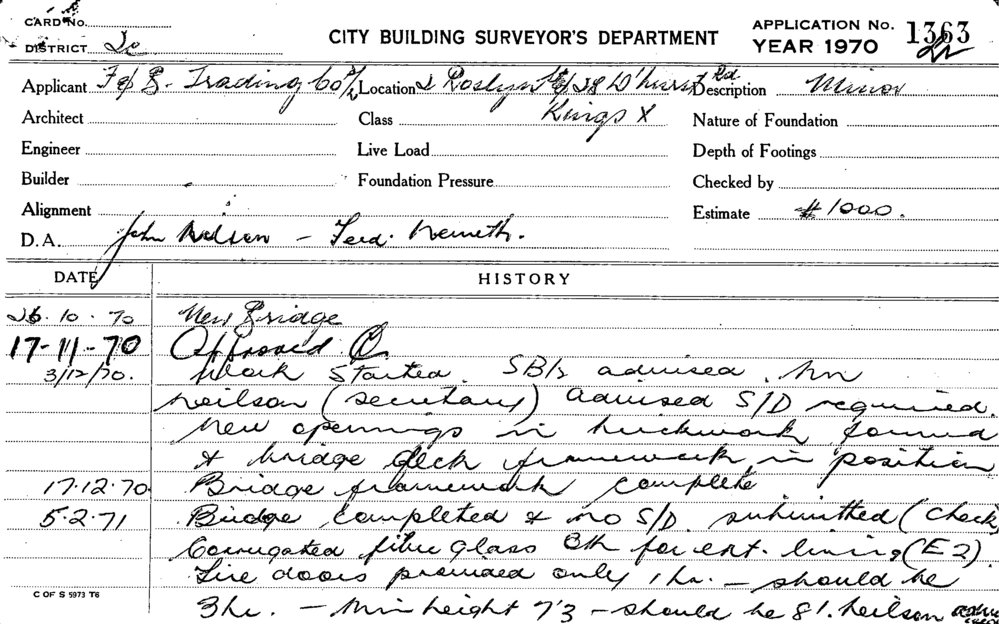 CARD No.
DISTRICT
CITY BUILDING SURVEYOR'S DEPARTMENT
APPLICATION No. 1363
YEAR 1970
Applicant F & S. Trading Co P/L Location 2 Roslyn St & 28 D'hurst Rd Description Minor
Kings X
Architect Class Nature of Foundation
Engineer Live Load Depth of Footings
Builder Foundation Pressure Checked by
Alignment Estimate $1000.
D.A. John Neilson – Ferd. Nemeth.
DATE HISTORY
26.10.70 New Bridge
17-11-70 Approved
3/12/70. Work started. SB/s advised. Mr
Neilson (secretary) advised S/D required.
New openings in brickwork formed
& bridge deck framework in position
17.12.70 Bridge framework complete
5.2.71 Bridge completed & no S/D submitted (check)
Corrugated fibre glass OK for ext. lining (E2)
Fire doors provided only 1 hr. – should be
3hr. – Min height 7'3 – should be 8'. Neilson
C OF S 5973 T6